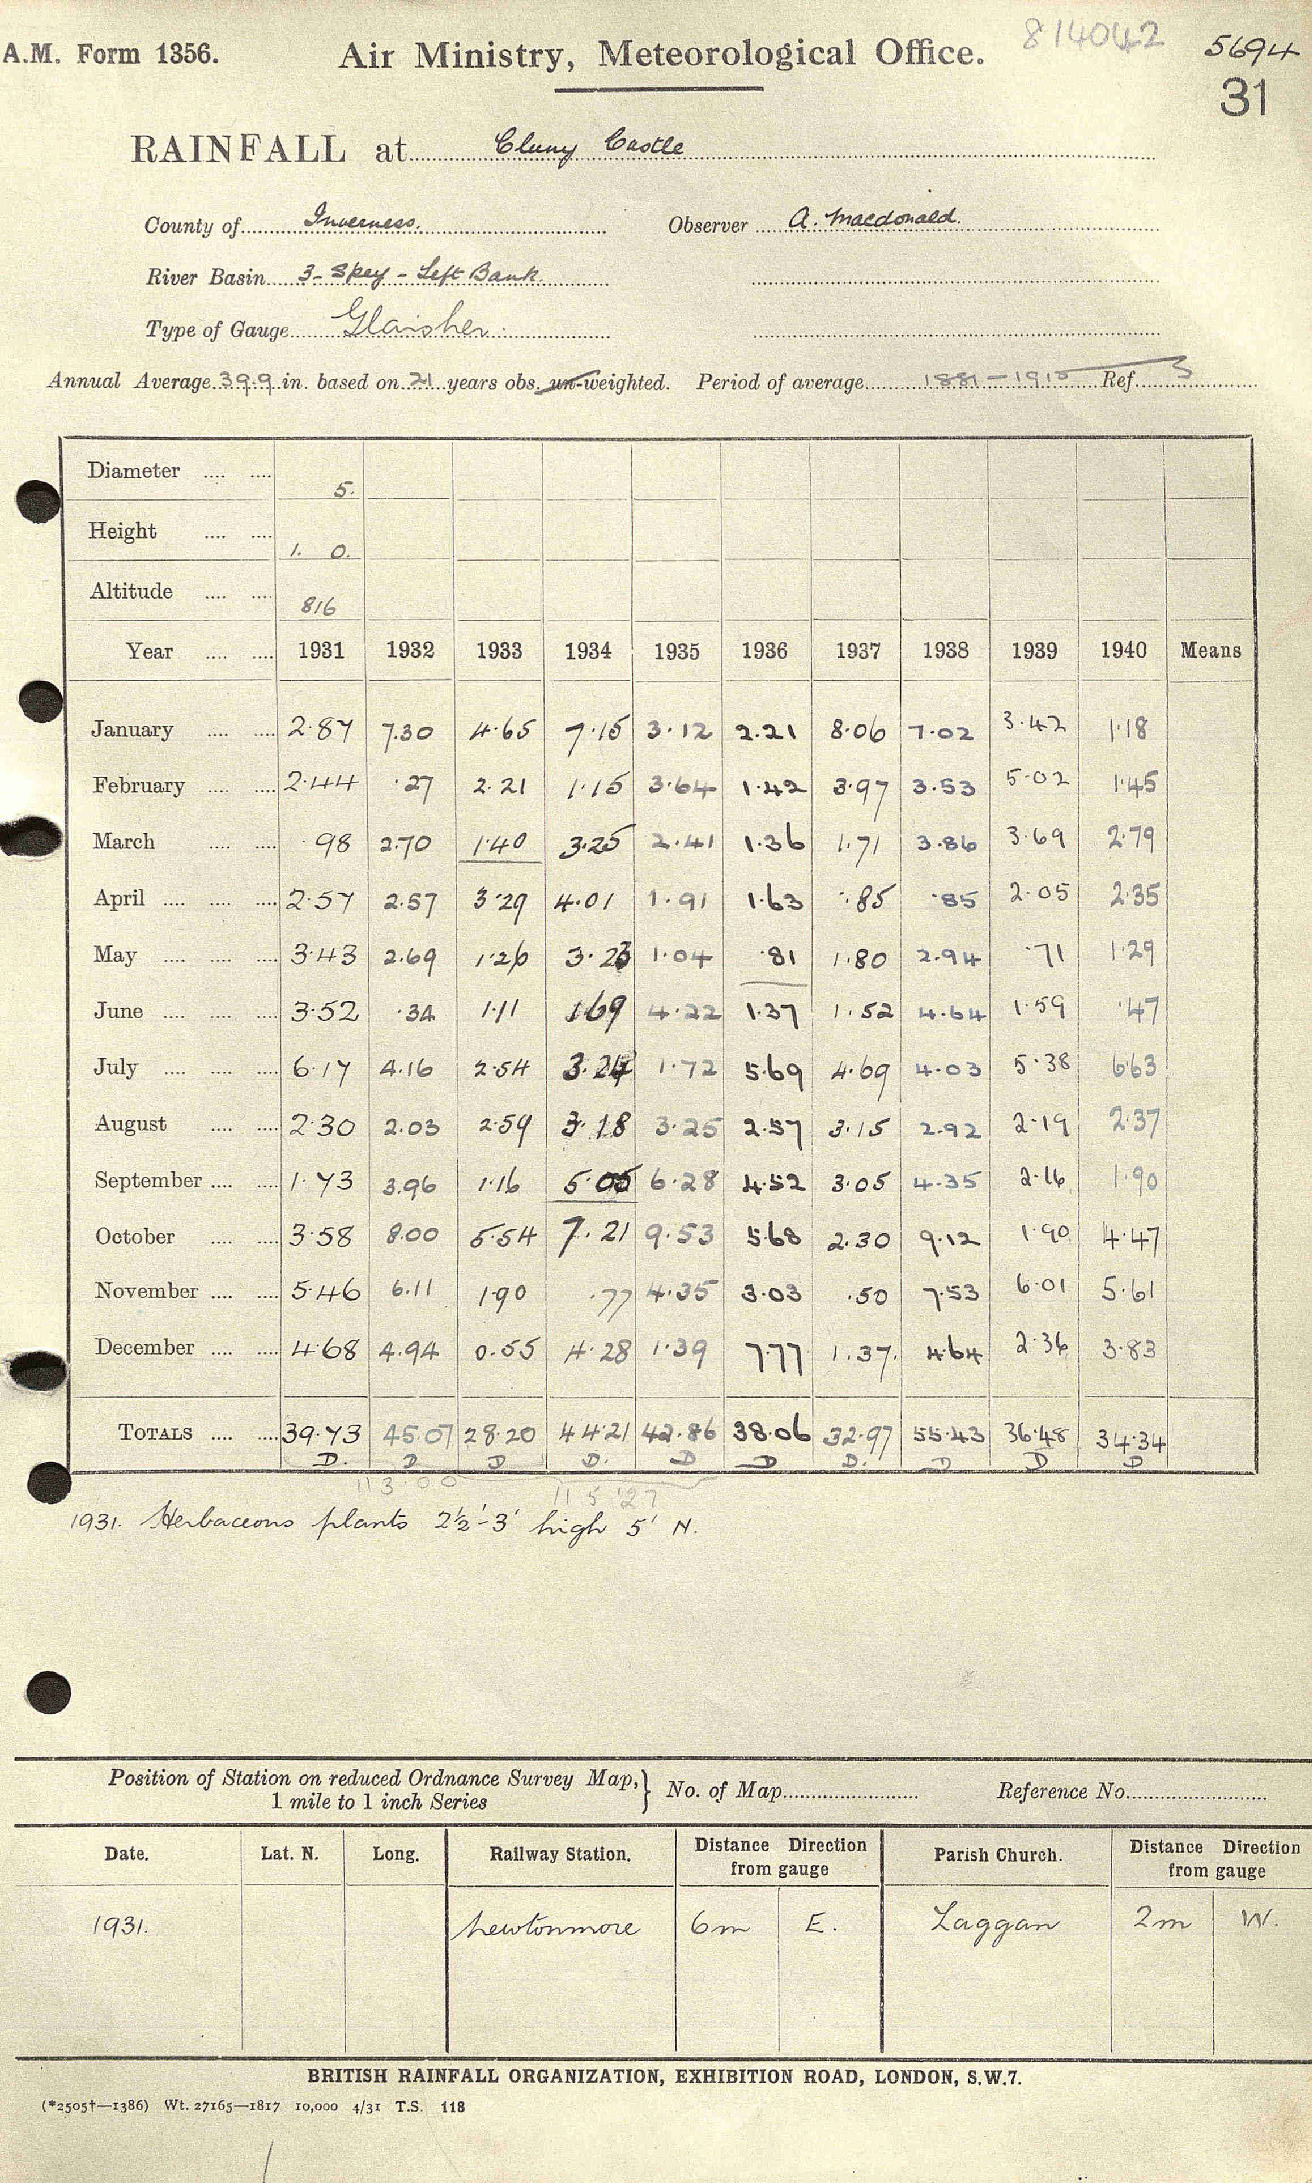 814042
5694
A.M. Form 1356. Air Ministry, Meteorological Office.
31
RAINFALL at Cluny Castle
County of Inverness. Observer A. Macdonald.
River Basin 3 - Spey - Left Bank
Type of Gauge Glaisher.
Annual Average 39.9 in. based on 21 years obs. un-weighted. Period of average 1881-1915 Ref. 3
Diameter 5.
Height 1. 0.
Altitude 816
Year 1931 1932 1933 1934 1935 1936 1937 1938 1939 1940 Means
January 2.87 7.30 4.65 7.15 3.12 2.21 8.06 7.02 3.42 1.18
February 2.44 .27 2.21 1.15 3.64 1.42 3.97 3.53 5.02 1.45
March .98 2.70 1.40 3.25 2.41 1.36 1.71 3.86 3.69 2.79
April 2.57 2.57 3.29 4.01 1.91 1.63 .85 .85 2.05 2.35
May 3.43 2.69 1.26 3.23 1.04 .81 1.80 2.94 .71 1.29
June 3.52 .34 1.11 1.69 4.22 1.37 1.52 4.64 1.59 .47
July 6.17 4.16 2.54 3.24 1.72 5.69 4.69 4.03 5.38 6.63
August 2.30 2.03 2.59 3.18 3.25 2.57 3.15 2.92 2.19 2.37
September 1.73 3.96 1.16 5.05 6.28 4.52 3.05 4.35 2.16 1.90
October 3.58 8.00 5.54 7.21 9.53 5.68 2.30 9.12 1.90 4.47
November 5.46 6.11 1.90 .77 4.35 3.03 .50 7.53 6.01 5.61
December 4.68 4.94 0.55 4.28 1.39 7.77 1.37 4.64 2.36 3.83
TOTALS 39.73 45.07 28.20 44.21 42.86 38.06 32.97 55.43 36.48 34.34
D. D D D. D D D. D D D
113.00 115.27
1931. Herbaceous plants 2½'-3' high 5' N.
Position of Station on reduced Ordnance Survey Map, 1 mile to 1 inch Series No. of Map Reference No.
Date. Lat. N. Long. Railway Station. Distance Direction from gauge Parish Church. Distance Direction from gauge
1931. Newtonmore 6m E. Laggan 2m W.
BRITISH RAINFALL ORGANIZATION, EXHIBITION ROAD, LONDON, S.W.7.
(*2505†—1386) Wt. 27165—1817 10,000 4/31 T.S. 118